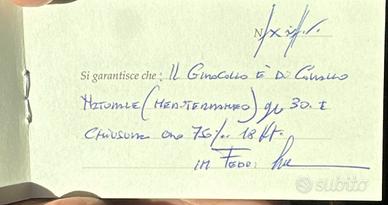 N.
Si garantisce che: IL GIROCOLLO È DI CORALLO
NATURALE (MEDITERRANEO) gr 30. E
CHIUSURA ORO 750/°° 18 Kt.
IN FEDE:
subito